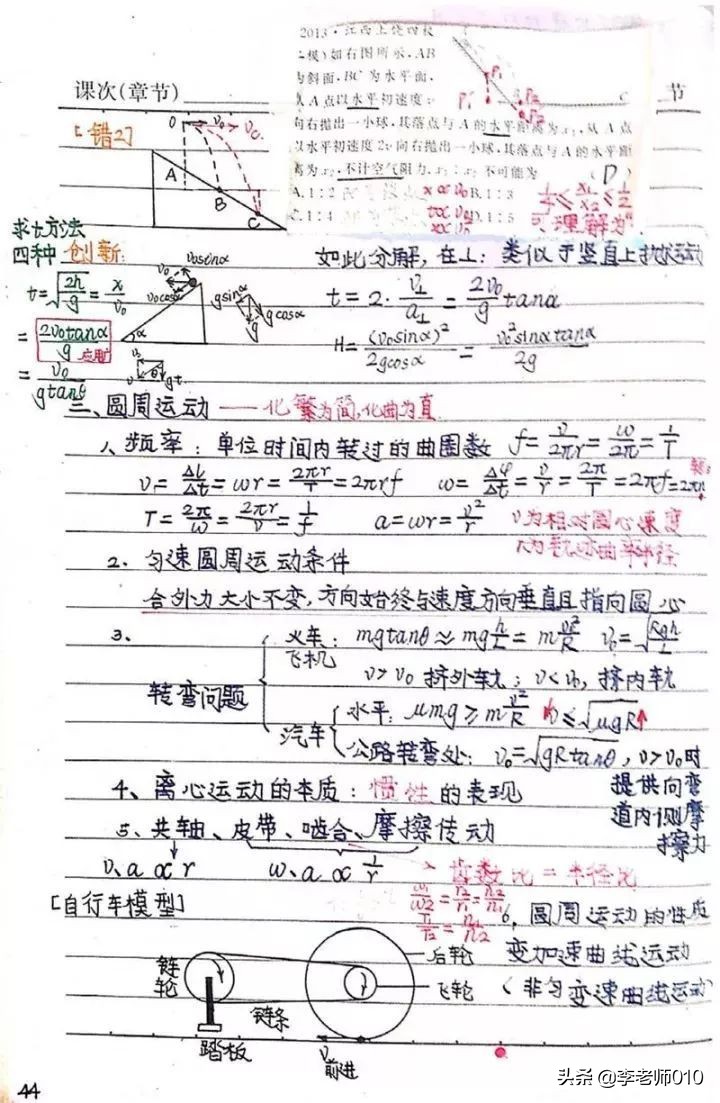 2013·江西上饶四校
一模)如右图所示,AB
为斜面,BC为水平面,
从A点以水平初速度v
向右抛出一小球,其落点与A的水平距离为x₁,从A点
以水平初速度2v向右抛出一小球,其落点与A的水平距
离为x₂,不计空气阻力,x₁:x₂不可能为 (D)
A.1:2 B.1:3
C.1:4 D.1:5
x∝v₀
t∝v₀
1/4≤x₁/x₂≤1/2
可理解为
P₁' P₁ P₂' P₂
C
课次(章节) 节
[错2]
O v₀ v_C
A
B
C
求t方法
四种 创新:
如此分解,在⊥:类似于竖直上抛运动
t=√(2h/g)=x/v₀
v₀sinα
v₀
v₀cosα
gsinα
gcosα
g
α
t=2·v⊥/a⊥=2v₀/g tanα
=2v₀tanα/g 应用
H=(v₀sinα)²/2gcosα=v₀²sinαtanα/2g
=v₀/gtanθ
v₀
θ
gt
三、圆周运动——化繁为简,化曲为直
1、频率:单位时间内转过的曲圈数 f=v/2πr=ω/2π=1/T
v=Δl/Δt=ωr=2πr/T=2πrf ω=Δφ/Δt=v/r=2π/T=2πf=2πn
T=2π/ω=2πr/v=1/f a=ωr=v²/r v为相对圆心速度
r为轨迹曲率半径
2、匀速圆周运动条件
合外力大小不变,方向始终与速度方向垂直且指向圆心
3、
转弯问题
火车:mgtanθ≈mg h/L=m v₀²/R v₀=√(Rgh/L)
飞机
v>v₀ 挤外轨;v<v₀,挤内轨
汽车
水平:μmg≥m v²/R v≤√(μgR)
公路转弯处:v₀=√(gRtanθ),v>v₀时
提供向弯
道内侧摩
擦力
4、离心运动的本质:惯性的表现
5、共轴、皮带、啮合、摩擦传动
v、a∝r ω、a∝1/r
齿数比=半径比
ω₁/ω₂=r₂/r₁=n₂/n₁
T₁/T₂=n₁/n₂
[自行车模型]
6、圆周运动的性质
变加速曲线运动
(非匀变速曲线运动)
链轮
后轮
飞轮
链条
踏板
v前进
44
头条 @李老师010